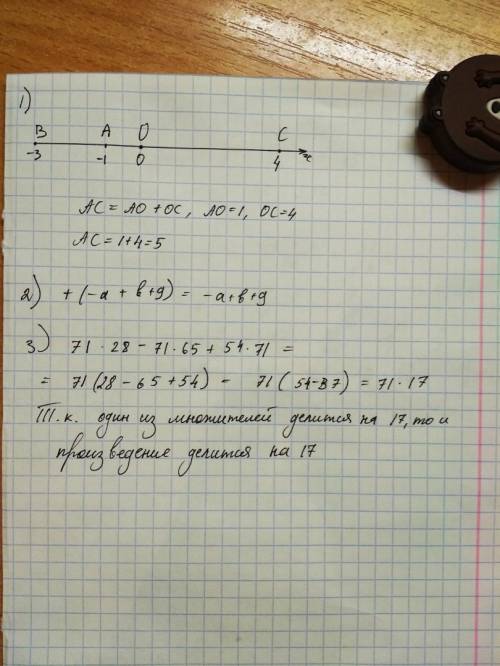 1)
B A O C
-3 -1 0 4 x
AC = AO + OC, AO=1, OC=4
AC = 1+4=5
2) + (-a + b + g) = -a+b+g
3) 71 · 28 - 71 · 65 + 54 · 71 =
= 71 (28 - 65 + 54) - 71 ( 54-37) = 71 · 17
Т.к. один из множителей делится на 17, то и
произведение делится на 17